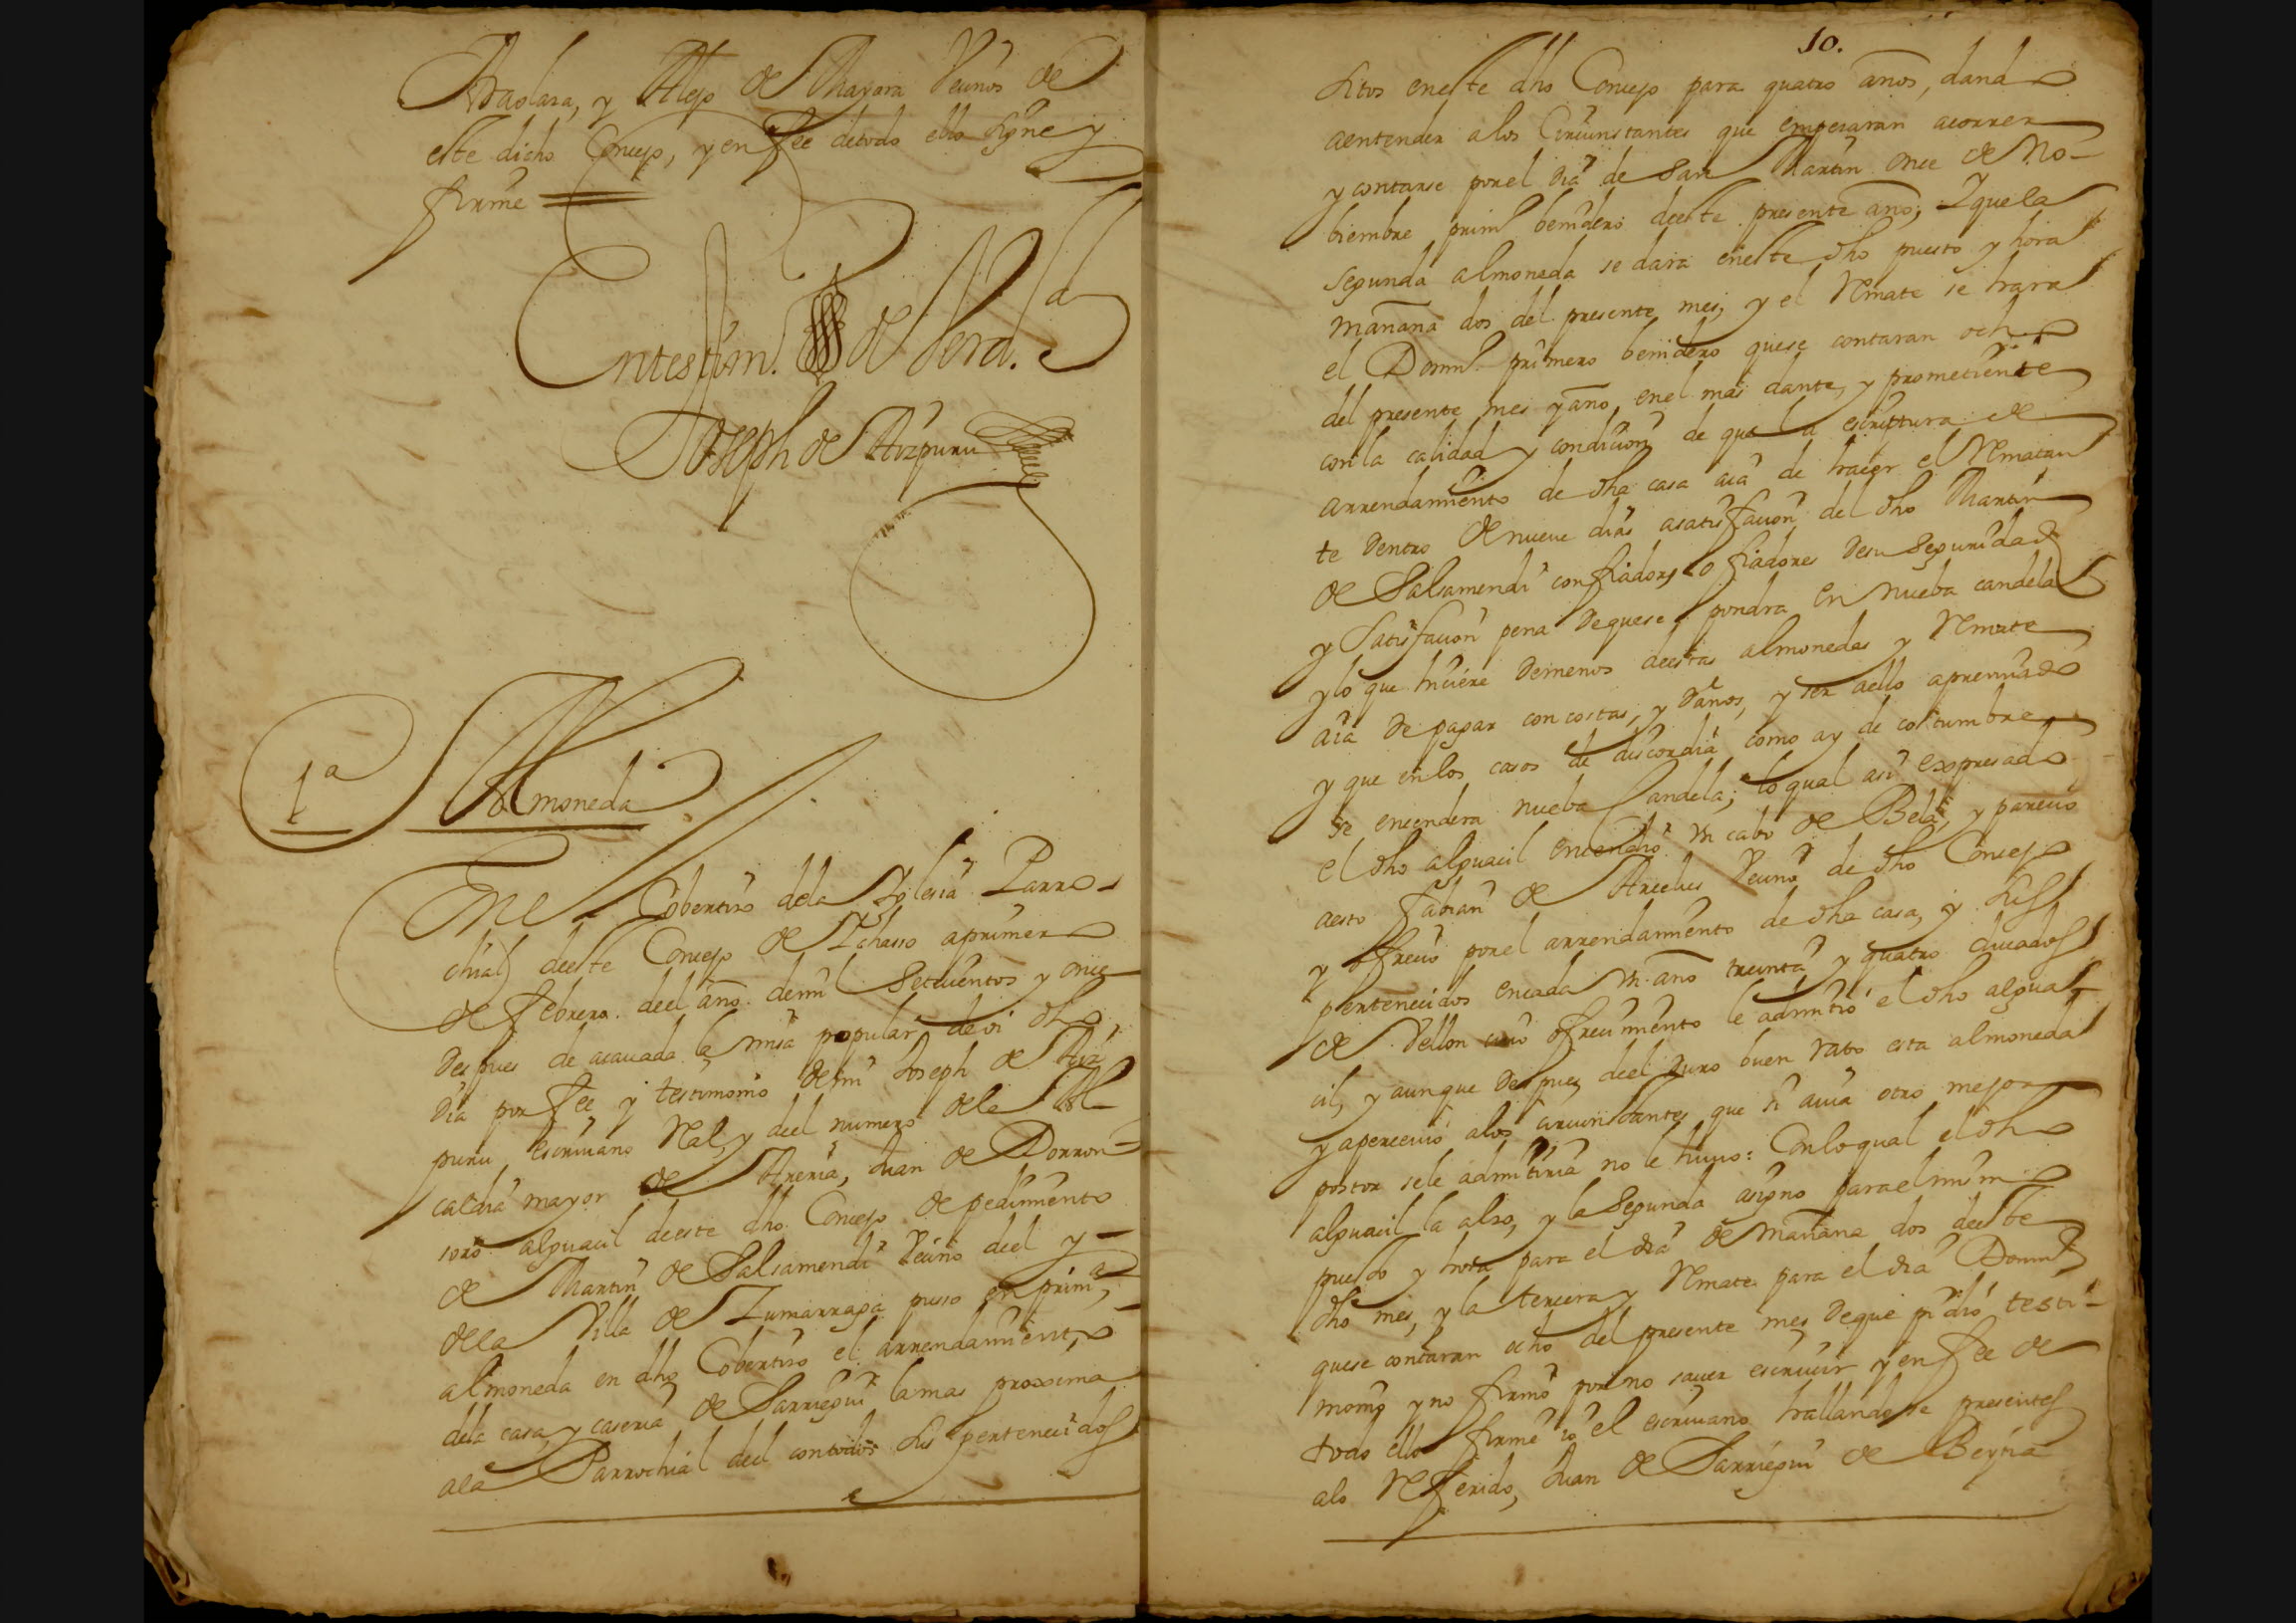 Araolaza, y Alejo de Mayora Vecinos de
este dicho Concejo, y en fee de todo ello signe y
firme
En testim.º de Verd.d
Joseph de Aizpuru
1ª Almoneda
En el Cobertizo de la Iglesia Parro-
chial deeste Concejo de Ichasso a primero
de febrero deel año de mil Setecientos y once
Despues de acauada la misa popular de oi dho
Dia por fee y testimonio de mi Joseph de Aiz
puru escriuano Real, y del numero de la Al-
caldia mayor de Areria, Juan de Dorron-
soro alguacil de este dho Concejo de pedimento
de Martin de Salsamendi Vecino deel y
de la Villa de Zumarraga pusso en prim.ª
almoneda en dho Cobertizo el arrendamiento
dela casa, y caseria de Sarriegui la mas proxima
ala Parrochial deel con todos sus pertenecidos
10.
sitos en este dho Concejo para quatro años, dando
a entender a los Circunstantes que empesaran acorrer
y contarse por el dia de San Martin once de No-
biembre prim.º benidero deeste presente año; Y que la
segunda almoneda se dara en este dho puesto y hora
mañana dos del presente mes, y el Remate se hara
el Dom.º primero benidero que se contaran ocho
del presente mes y año en el mas dante, y prometiente
con la calidad y condicion de que la escriptura de
arrendamiento de dha casa aia de hacer el Rematan
te Dentro de nueve dias a satisfacion del dho Martin
de Salsamendi con fiador, o fiadores De su Seguridad
y Satisfacion pena De que se pondra en nueba candela
y lo que huiere De menos deestas almonedas y Remate
aia De pagar con costas, y Daños, y ser a ello apremiado
y que en los casos de discordia como ay de costumbre
se encendera nueba Candela; lo qual asi expresado
el dho alguacil encendio vn cabo de Bela, y parecio
aesto fabian de Arcelus Vecino de dho Concejo
y ofrecio por el arrendamiento de dha casa, y sus
pertenecidos en cada vn año treinta y quatro ducados
de Vellon cuio ofrecimiento le admitio el dho algua-
cil, y aunque Despues deel Duro buen rato esta almoneda
y apercevio alos circunstantes que si auia otro mejor
postor sele admitiria no le huuo: Con lo qual el dho
alguacil la also, y la Segunda asigno para el mismo
puesto y hora para el dia de mañana dos deeste
dho mes, y la tercera y Remate para el dia Dom.º
que se contaran ocho del presente mes De que pidio testi-
monio y no firmo por no sauer escriuir y en fee de
todo ello firme io el escriuano hallandose presentes
alo Referido, Juan de Sarriegui de Beytia